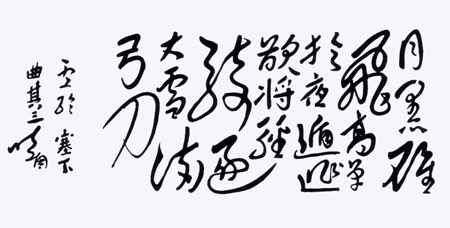 月黑雁
飛高单
於夜遁逃
欲将轻
骑逐
大雪满
弓刀
卢纶 塞下
曲其三